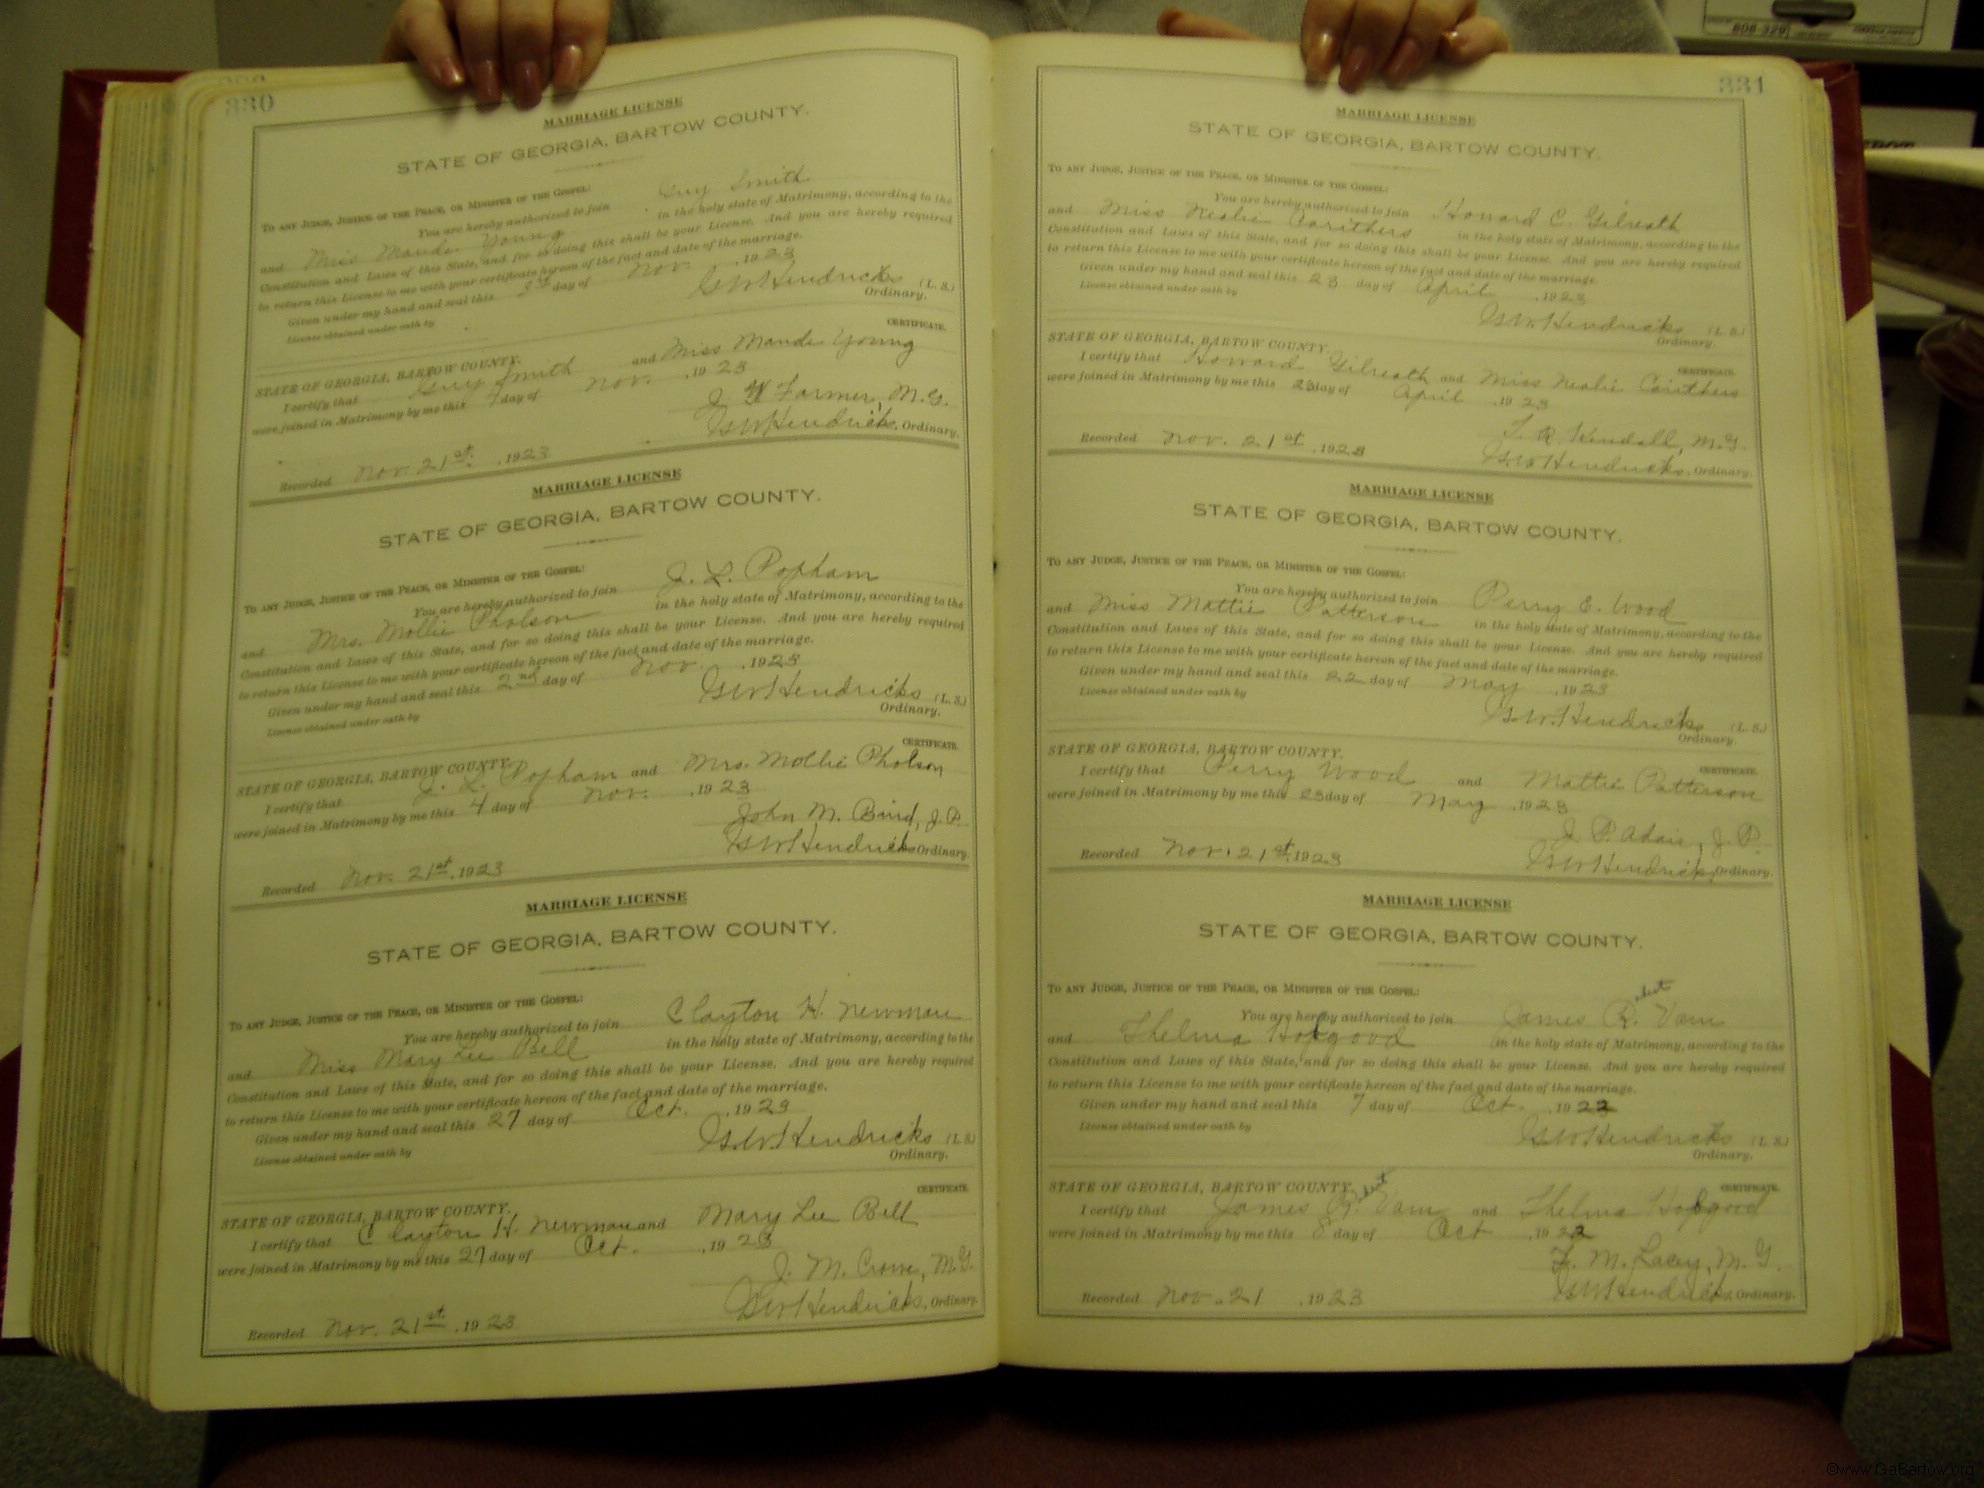 330
MARRIAGE LICENSE
STATE OF GEORGIA, BARTOW COUNTY.
TO ANY JUDGE, JUSTICE OF THE PEACE, OR MINISTER OF THE GOSPEL:
You are hereby authorized to join Guy Smith
and Miss Maude Young in the holy state of Matrimony, according to the
Constitution and Laws of this State, and for so doing this shall be your License. And you are hereby required
to return this License to me with your certificate hereon of the fact and date of the marriage.
Given under my hand and seal this day of Nov. , 1923
License obtained under oath by
G.W. Hendricks (L. S.)
Ordinary.
CERTIFICATE.
STATE OF GEORGIA, BARTOW COUNTY.
I certify that Guy Smith and Miss Maude Young
were joined in Matrimony by me this day of Nov. , 1923
J. W. Farmer, M.G.
Recorded Nov. 21st , 1923 G.W. Hendricks, Ordinary.
MARRIAGE LICENSE
STATE OF GEORGIA, BARTOW COUNTY.
TO ANY JUDGE, JUSTICE OF THE PEACE, OR MINISTER OF THE GOSPEL:
You are hereby authorized to join J. L. Popham
and Mrs. Mollie Pholson in the holy state of Matrimony, according to the
Constitution and Laws of this State, and for so doing this shall be your License. And you are hereby required
to return this License to me with your certificate hereon of the fact and date of the marriage.
Given under my hand and seal this 2nd day of Nov. , 1923
License obtained under oath by
G.W. Hendricks (L. S.)
Ordinary.
CERTIFICATE.
STATE OF GEORGIA, BARTOW COUNTY.
I certify that J. L. Popham and Mrs. Mollie Pholson
were joined in Matrimony by me this 4 day of Nov. , 1923
John M. Baird, J.P.
Recorded Nov. 21st , 1923 G.W. Hendricks Ordinary.
MARRIAGE LICENSE
STATE OF GEORGIA, BARTOW COUNTY.
TO ANY JUDGE, JUSTICE OF THE PEACE, OR MINISTER OF THE GOSPEL:
You are hereby authorized to join Clayton H. Newman
and Miss Mary Lee Bell in the holy state of Matrimony, according to the
Constitution and Laws of this State, and for so doing this shall be your License. And you are hereby required
to return this License to me with your certificate hereon of the fact and date of the marriage.
Given under my hand and seal this 27 day of Oct. , 1923
License obtained under oath by
G.W. Hendricks (L. S.)
Ordinary.
CERTIFICATE.
STATE OF GEORGIA, BARTOW COUNTY.
I certify that Clayton H. Newman and Mary Lee Bell
were joined in Matrimony by me this 27 day of Oct. , 1923
J. M. Crowe, M.G.
G.W. Hendricks, Ordinary.
Recorded Nov. 21st , 1923
331
MARRIAGE LICENSE
STATE OF GEORGIA, BARTOW COUNTY.
TO ANY JUDGE, JUSTICE OF THE PEACE, OR MINISTER OF THE GOSPEL:
You are hereby authorized to join Howard C. Gilreath
and Miss Nealie Carithers in the holy state of Matrimony, according to the
Constitution and Laws of this State, and for so doing this shall be your License. And you are hereby required
to return this License to me with your certificate hereon of the fact and date of the marriage.
Given under my hand and seal this 23 day of April , 1923
License obtained under oath by
G.W. Hendricks (L. S.)
Ordinary.
CERTIFICATE.
STATE OF GEORGIA, BARTOW COUNTY.
I certify that Howard Gilreath and Miss Nealie Carithers
were joined in Matrimony by me this 23 day of April , 1923
T. R. Kendall, M.G.
Recorded Nov. 21st , 1923 G.W. Hendricks, Ordinary.
MARRIAGE LICENSE
STATE OF GEORGIA, BARTOW COUNTY.
TO ANY JUDGE, JUSTICE OF THE PEACE, OR MINISTER OF THE GOSPEL:
You are hereby authorized to join Perry E. Wood
and Miss Mattie Patterson in the holy state of Matrimony, according to the
Constitution and Laws of this State, and for so doing this shall be your License. And you are hereby required
to return this License to me with your certificate hereon of the fact and date of the marriage.
Given under my hand and seal this 22 day of May , 1923
License obtained under oath by
G.W. Hendricks (L. S.)
Ordinary.
CERTIFICATE.
STATE OF GEORGIA, BARTOW COUNTY.
I certify that Perry Wood and Mattie Patterson
were joined in Matrimony by me this 23 day of May , 1923
J. P. Adair, J. P.
Recorded Nov. 21st , 1923 G.W. Hendricks, Ordinary.
MARRIAGE LICENSE
STATE OF GEORGIA, BARTOW COUNTY.
TO ANY JUDGE, JUSTICE OF THE PEACE, OR MINISTER OF THE GOSPEL:
You are hereby authorized to join James Robert Vam
and Thelma Hobgood in the holy state of Matrimony, according to the
Constitution and Laws of this State, and for so doing this shall be your License. And you are hereby required
to return this License to me with your certificate hereon of the fact and date of the marriage.
Given under my hand and seal this 7 day of Oct. , 1922
License obtained under oath by
G.W. Hendricks (L. S.)
Ordinary.
CERTIFICATE.
STATE OF GEORGIA, BARTOW COUNTY.
I certify that James Robert Vam and Thelma Hobgood
were joined in Matrimony by me this 8 day of Oct , 1922
F. M. Lacey, M. G.
Recorded Nov. 21 , 1923 G.W. Hendricks, Ordinary.
608-329
©www.GaBartow.org